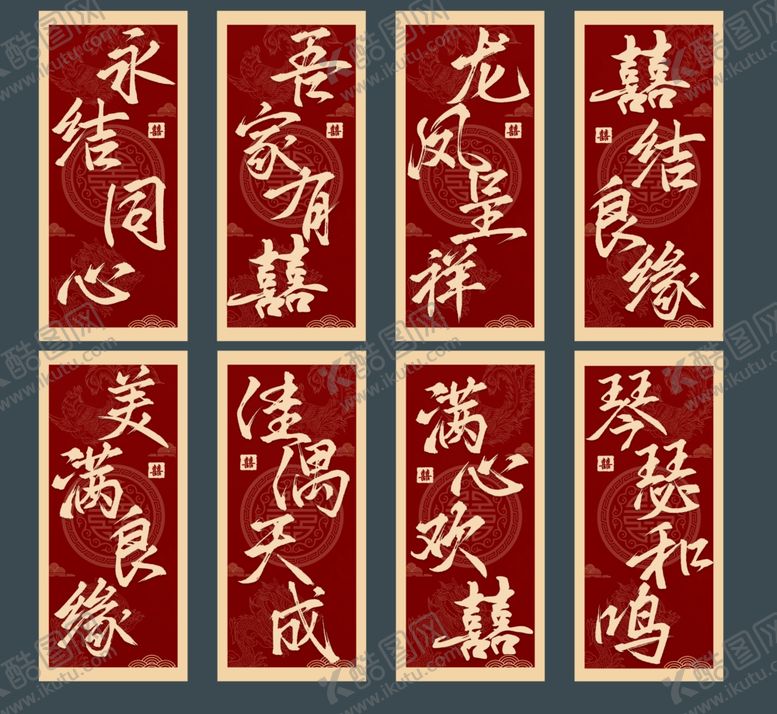 永结同心
吾家有囍
龙凤呈祥
囍结良缘
美满良缘
佳偶天成
满心欢囍
琴瑟和鸣
囍
囍
囍
囍
囍
囍
囍
囍
酷图网
www.ikutu.com